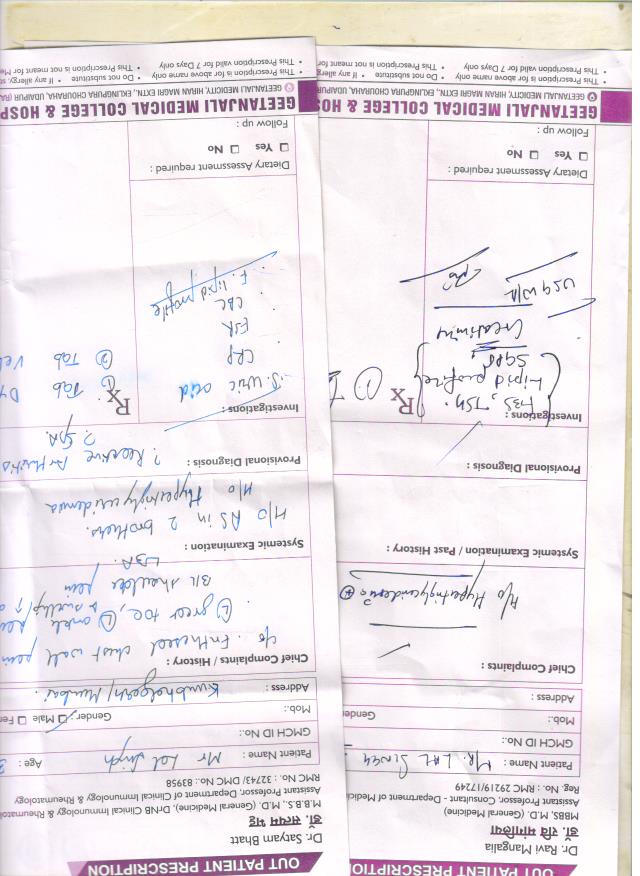 OUT PATIENT PRESCRIPTION
Dr. Satyam Bhatt
डॉ. सत्यम भट्ट
M.B.B.S., M.D. (General Medicine), DrNB Clinical Immunology & Rheumatolo
Assistant Professor, Department of Clinical Immunology & Rheumatology
RMC No.: 32743/ DMC No.: 83958
Patient Name : Mr Lal Singh Age : 3
GMCH ID No.:
Mob.: Gender: Male Fe
Address : Kumbhalgarh/Mumbai.
Chief Complaints / History :
c/o. Entheseal chest wall pain
(L) great toe, (L) ankle
& swelling
B/L shoulder pain
LBA
Systemic Examination :
H/O AS in 2 brothers.
H/O Hypertriglyceridemia
Provisional Diagnosis :
? Reactive Arthritis
? SpA
Investigations :
S. Uric acid
CRP
ESR
CBC
F. lipid profile
Rx
① Tab
② Tab
Dietary Assessment required :
Yes No
Follow up :
GEETANJALI MEDICAL COLLEGE & HOSP
GEETANJALI MEDICITY, HIRAN MAGRI EXTN., EKLINGPURA CHOURAHA, UDAIPUR (RA
• This Prescription is for above name only • Do not substitute • If any allergy, st
• This Prescription valid for 7 Days only • This Prescription is not meant for Me
OUT PATIENT PRESCRIPTION
Dr. Ravi Mangalia
डॉ. रवि मांगलिया
MBBS, M.D. (General Medicine)
Assistant Professor, Consultant - Department of Medici
Reg. No. : RMC 9219/17249
Patient Name : MR. LAL
GMCH ID No.:
Mob.: Gender
Address :
Chief Complaints :
H/o Hypertriglyceridemia
Systemic Examination / Past History :
Provisional Diagnosis :
Investigations :
FBS, TSH.
Lipid profile
SGPT
Creatinine
USG W/A
Rx
①
Dietary Assessment required :
Yes No
Follow up :
GEETANJALI MEDICAL COLLEGE & HOS
GEETANJALI MEDICITY, HIRAN MAGRI EXTN., EKLINGPURA CHOURAHA, UDAIPUR
• This Prescription is for above name only • Do not substitute • If any allerg
• This Prescription valid for 7 Days only • This Prescription is not meant for